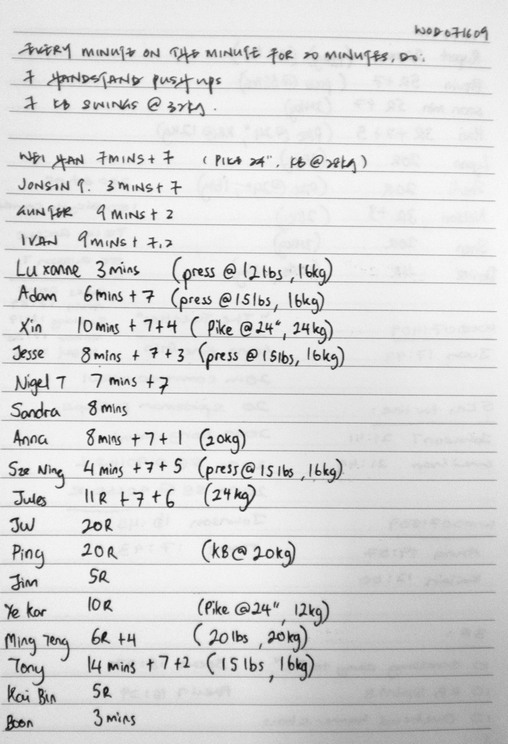 WOD 071609
EVERY MINUTE ON THE MINUTE FOR 20 MINUTES, DO:
7 HANDSTAND PUSH UPS
7 KB SWINGS @ 32KG.
WEI HAN 7MINS + 7 (PIKE 24", KB @ 28kg)
JONSIN T. 3MINS + 7
GUNTER 9 MINS + 2
IVAN 9 MINS + 7,2
Lu xanne 3 mins (press @ 12 lbs, 16kg)
Adam 6 mins + 7 (press @ 15 lbs, 16kg)
Xin 10 mins + 7+4 (Pike @ 24", 24kg)
Jesse 8 mins + 7+3 (press @ 15 lbs, 16kg)
Nigel T 7 mins + 7
Sandra 8mins
Anna 8 mins + 7 + 1 (20kg)
Sze Ning 4 mins + 7 + 5 (press @ 15 lbs, 16kg)
Jules 11R + 7 + 6 (24kg)
JW 20R
Ping 20R (KB @ 20kg)
Jim 5R
Ye Kar 10R (Pike @ 24", 12kg)
Ming Teng 6R + 4 (20 lbs, 20kg)
Tony 14 mins + 7+2 (15 lbs, 16kg)
Kai Bin 5R
Boon 3 mins